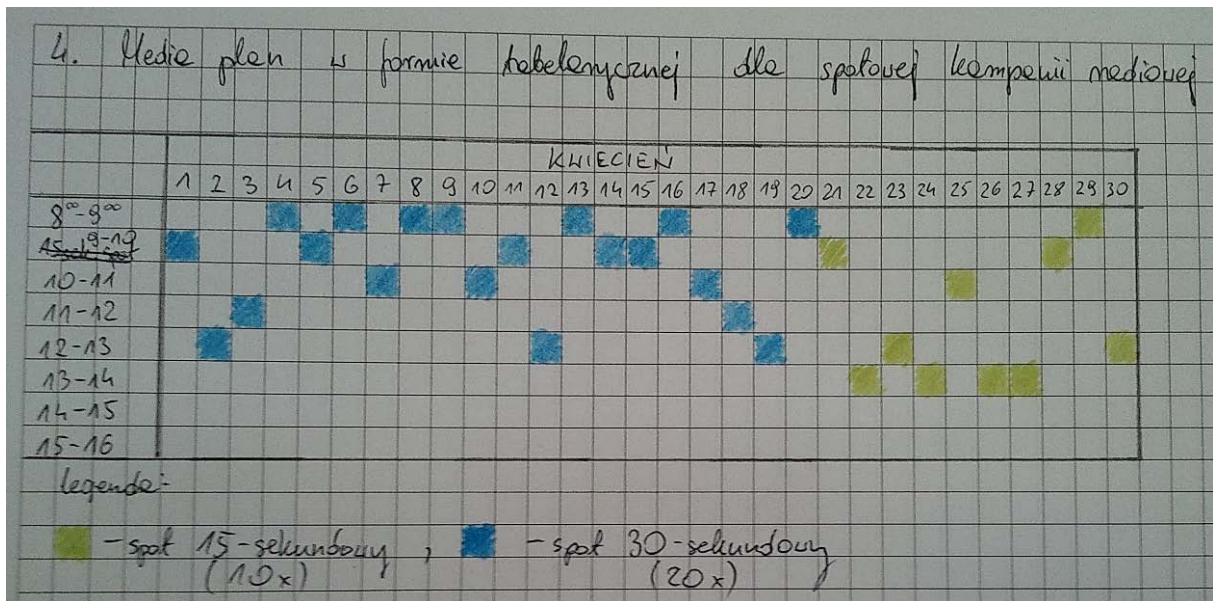 4. Media plan w formie tabelarycznej dla spotowej kampanii mediowej
KWIECIEŃ
1 2 3 4 5 6 7 8 9 10 11 12 13 14 15 16 17 18 19 20 21 22 23 24 25 26 27 28 29 30
8⁰⁰-9⁰⁰
9-10
10-11
11-12
12-13
13-14
14-15
15-16
legenda:
- spot 15-sekundowy, - spot 30-sekundowy
(10x) (20x)